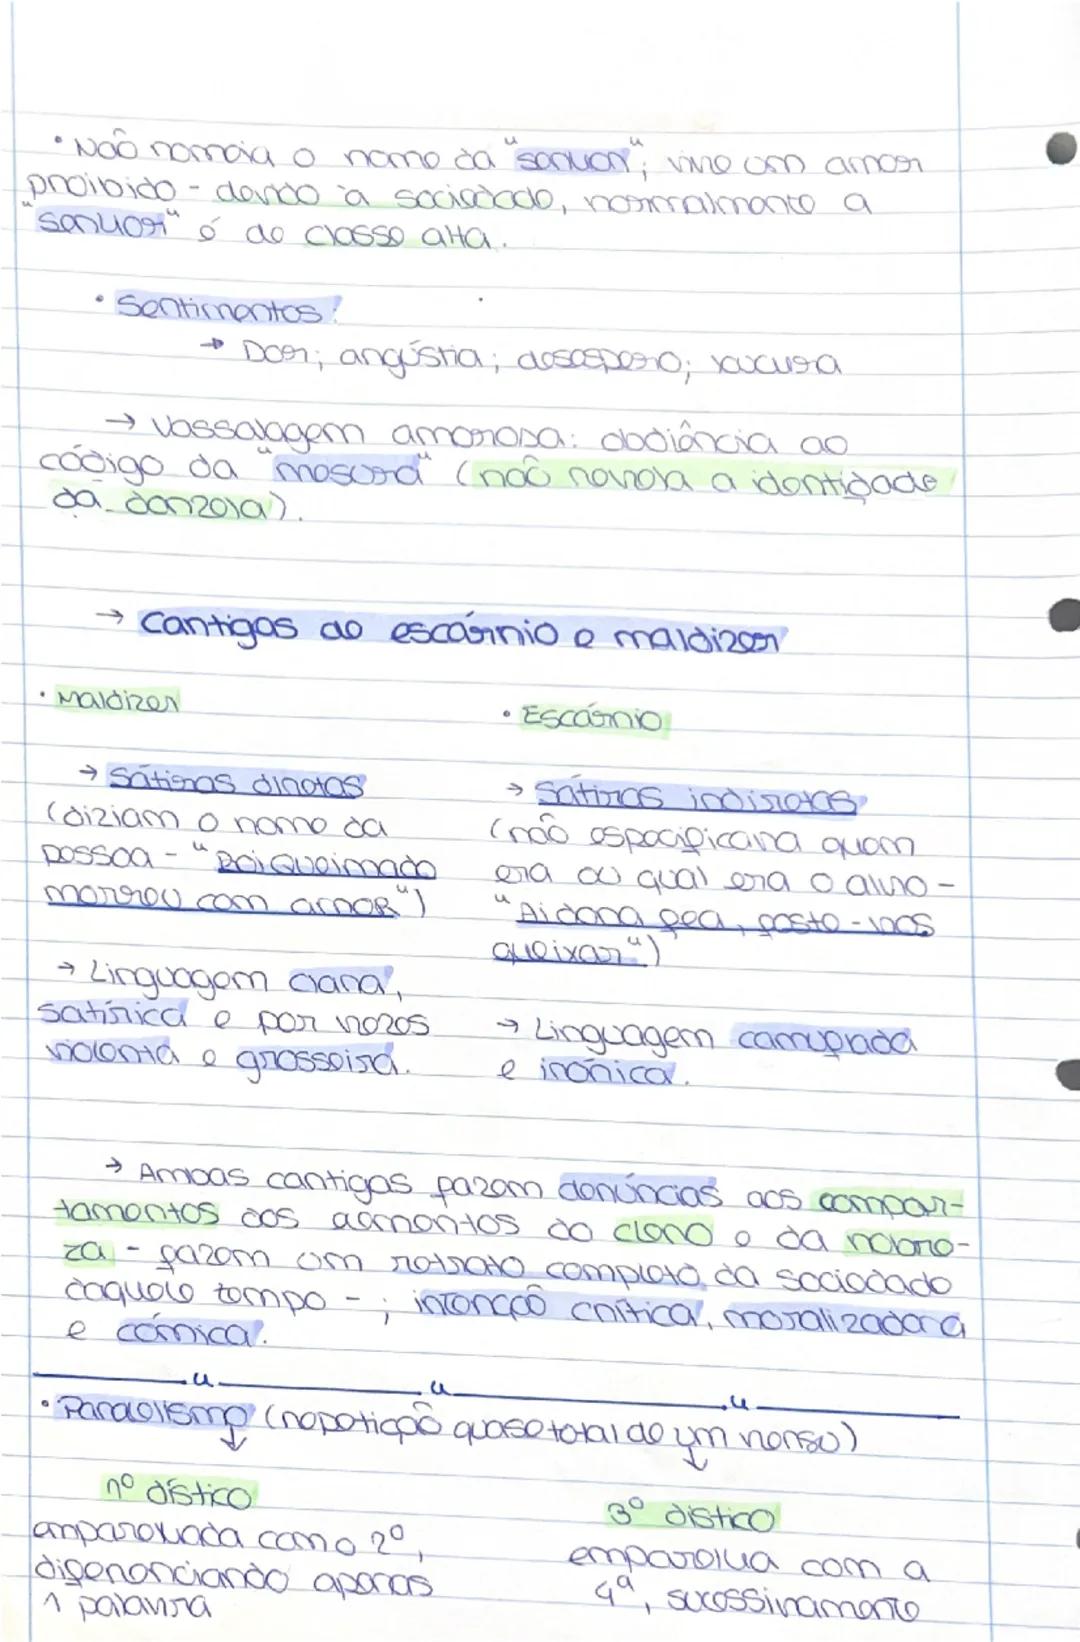 • Não nomeia o nome da "senhor"; vive um amor
proibido - devido à sociedade, normalmente a
"senhor" é de classe alta.
• Sentimentos:
→ Dor; angústia; desespero; loucura
→ Vassalagem amorosa: obdiância ao
código da "mesura" (não revela a identidade
da donzela).
→ Cantigas de escárnio e maldizer
• Maldizer
→ Sátiras diretas
(diziam o nome da
pessoa - "Roi Queimado
morreu com amor")
→ Linguagem clara,
satírica e por vezes
violenta e grosseira.
• Escárnio
→ Sátiras indiretas
(não especificava quem
era ou qual era o alvo -
"Ai dona fea, foste-vos
queixar")
→ Linguagem camuflada
e irónica.
→ Ambas cantigas fazem denúncias aos compor-
tamentos dos do clero e da nobre-
za - fazem um retrato completo da sociedade
daquele tempo - ; intenção crítica, moralizadora
e cómica.
• Paralelismo (repetição quase total de um verso)
1º dístico
emparelhada com o 2º,
diferenciando apenas
1 palavra
3º dístico
emparelha com a
4ª, sucessivamente